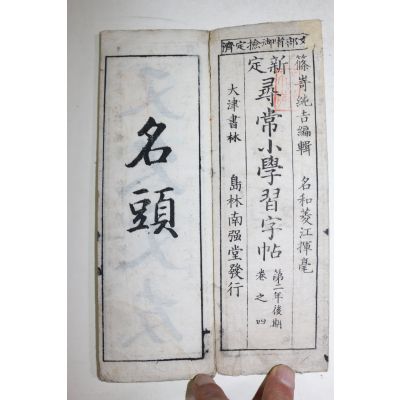 文部省御檢定濟
篠嵜純吉編輯 名和菱江揮毫
新定尋常小學習字帖 第二年後期 卷之四
大津書林 島林南强堂發行
名頭